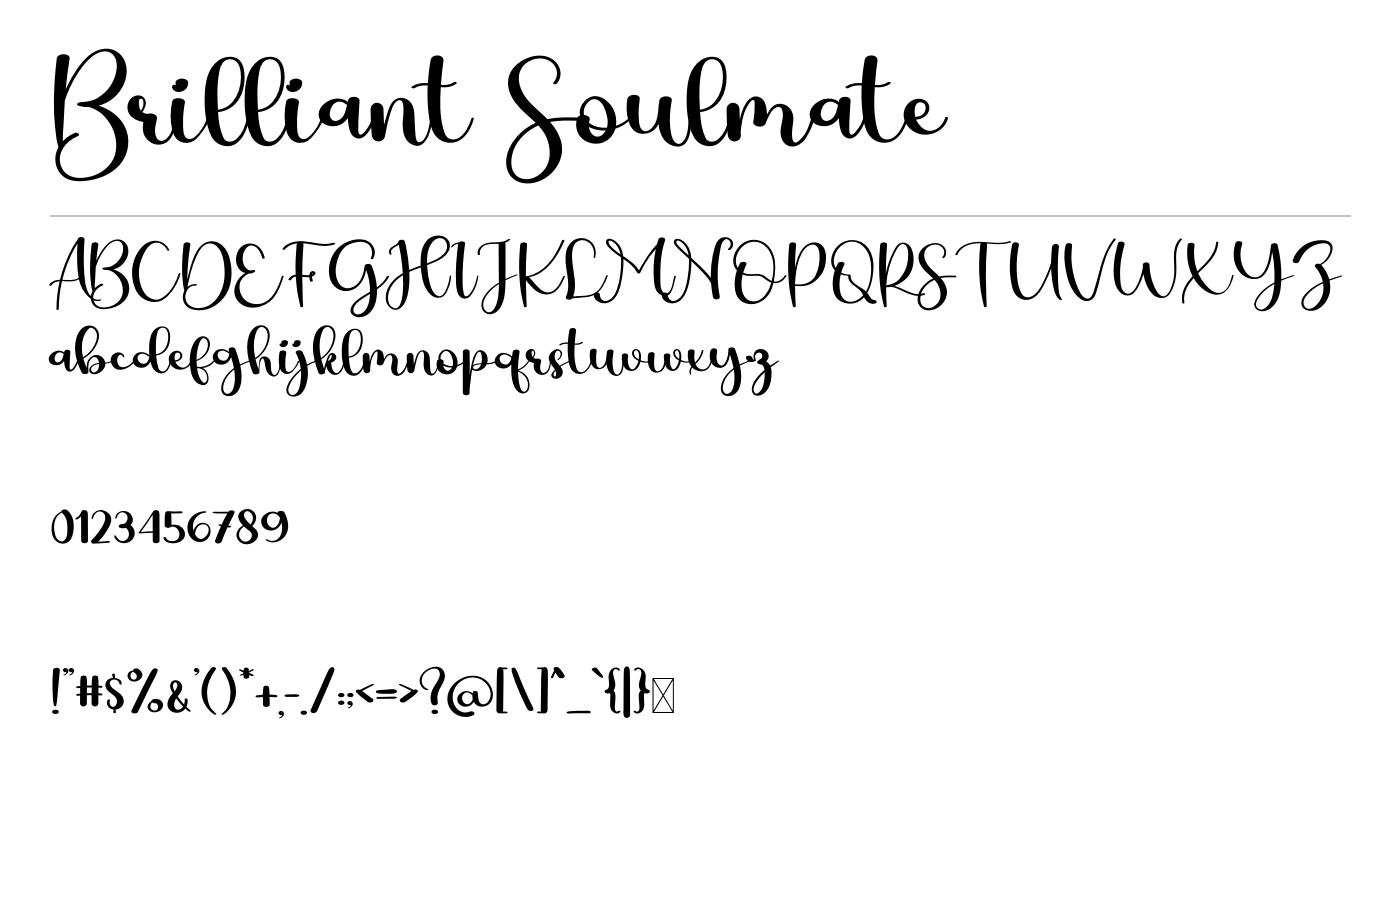 Brilliant Soulmate
ABCDEFGHIJKLMNOPQRSTUVWXYZ
abcdefghijklmnopqrstuvwxyz
0123456789
!"#$%&'()*+,-./:;<=>?@[\]^_`{|}